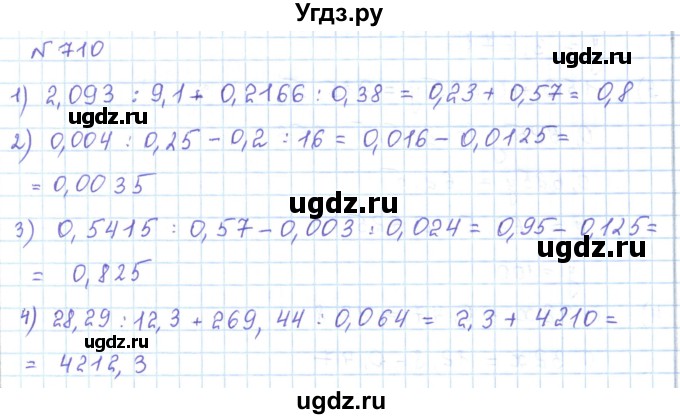 Угдз.ру
N 710
ugdz.ru
1) 2,093 : 9,1 + 0,2166 : 0,38 = 0,23 + 0,57 = 0,8
ugdz.ru ugdz.ru
2) 0,004 : 0,25 - 0,2 : 16 = 0,016 - 0,0125 =
= 0,0035
ugdz.ru
3) 0,5415 : 0,57 - 0,003 : 0,024 = 0,95 - 0,125 =
ugdz.ru
= 0,825
4) 28,29 : 12,3 + 269,44 : 0,064 = 2,3 + 4210 =
ugdz.ru
= 4212,3
ugdz.ru